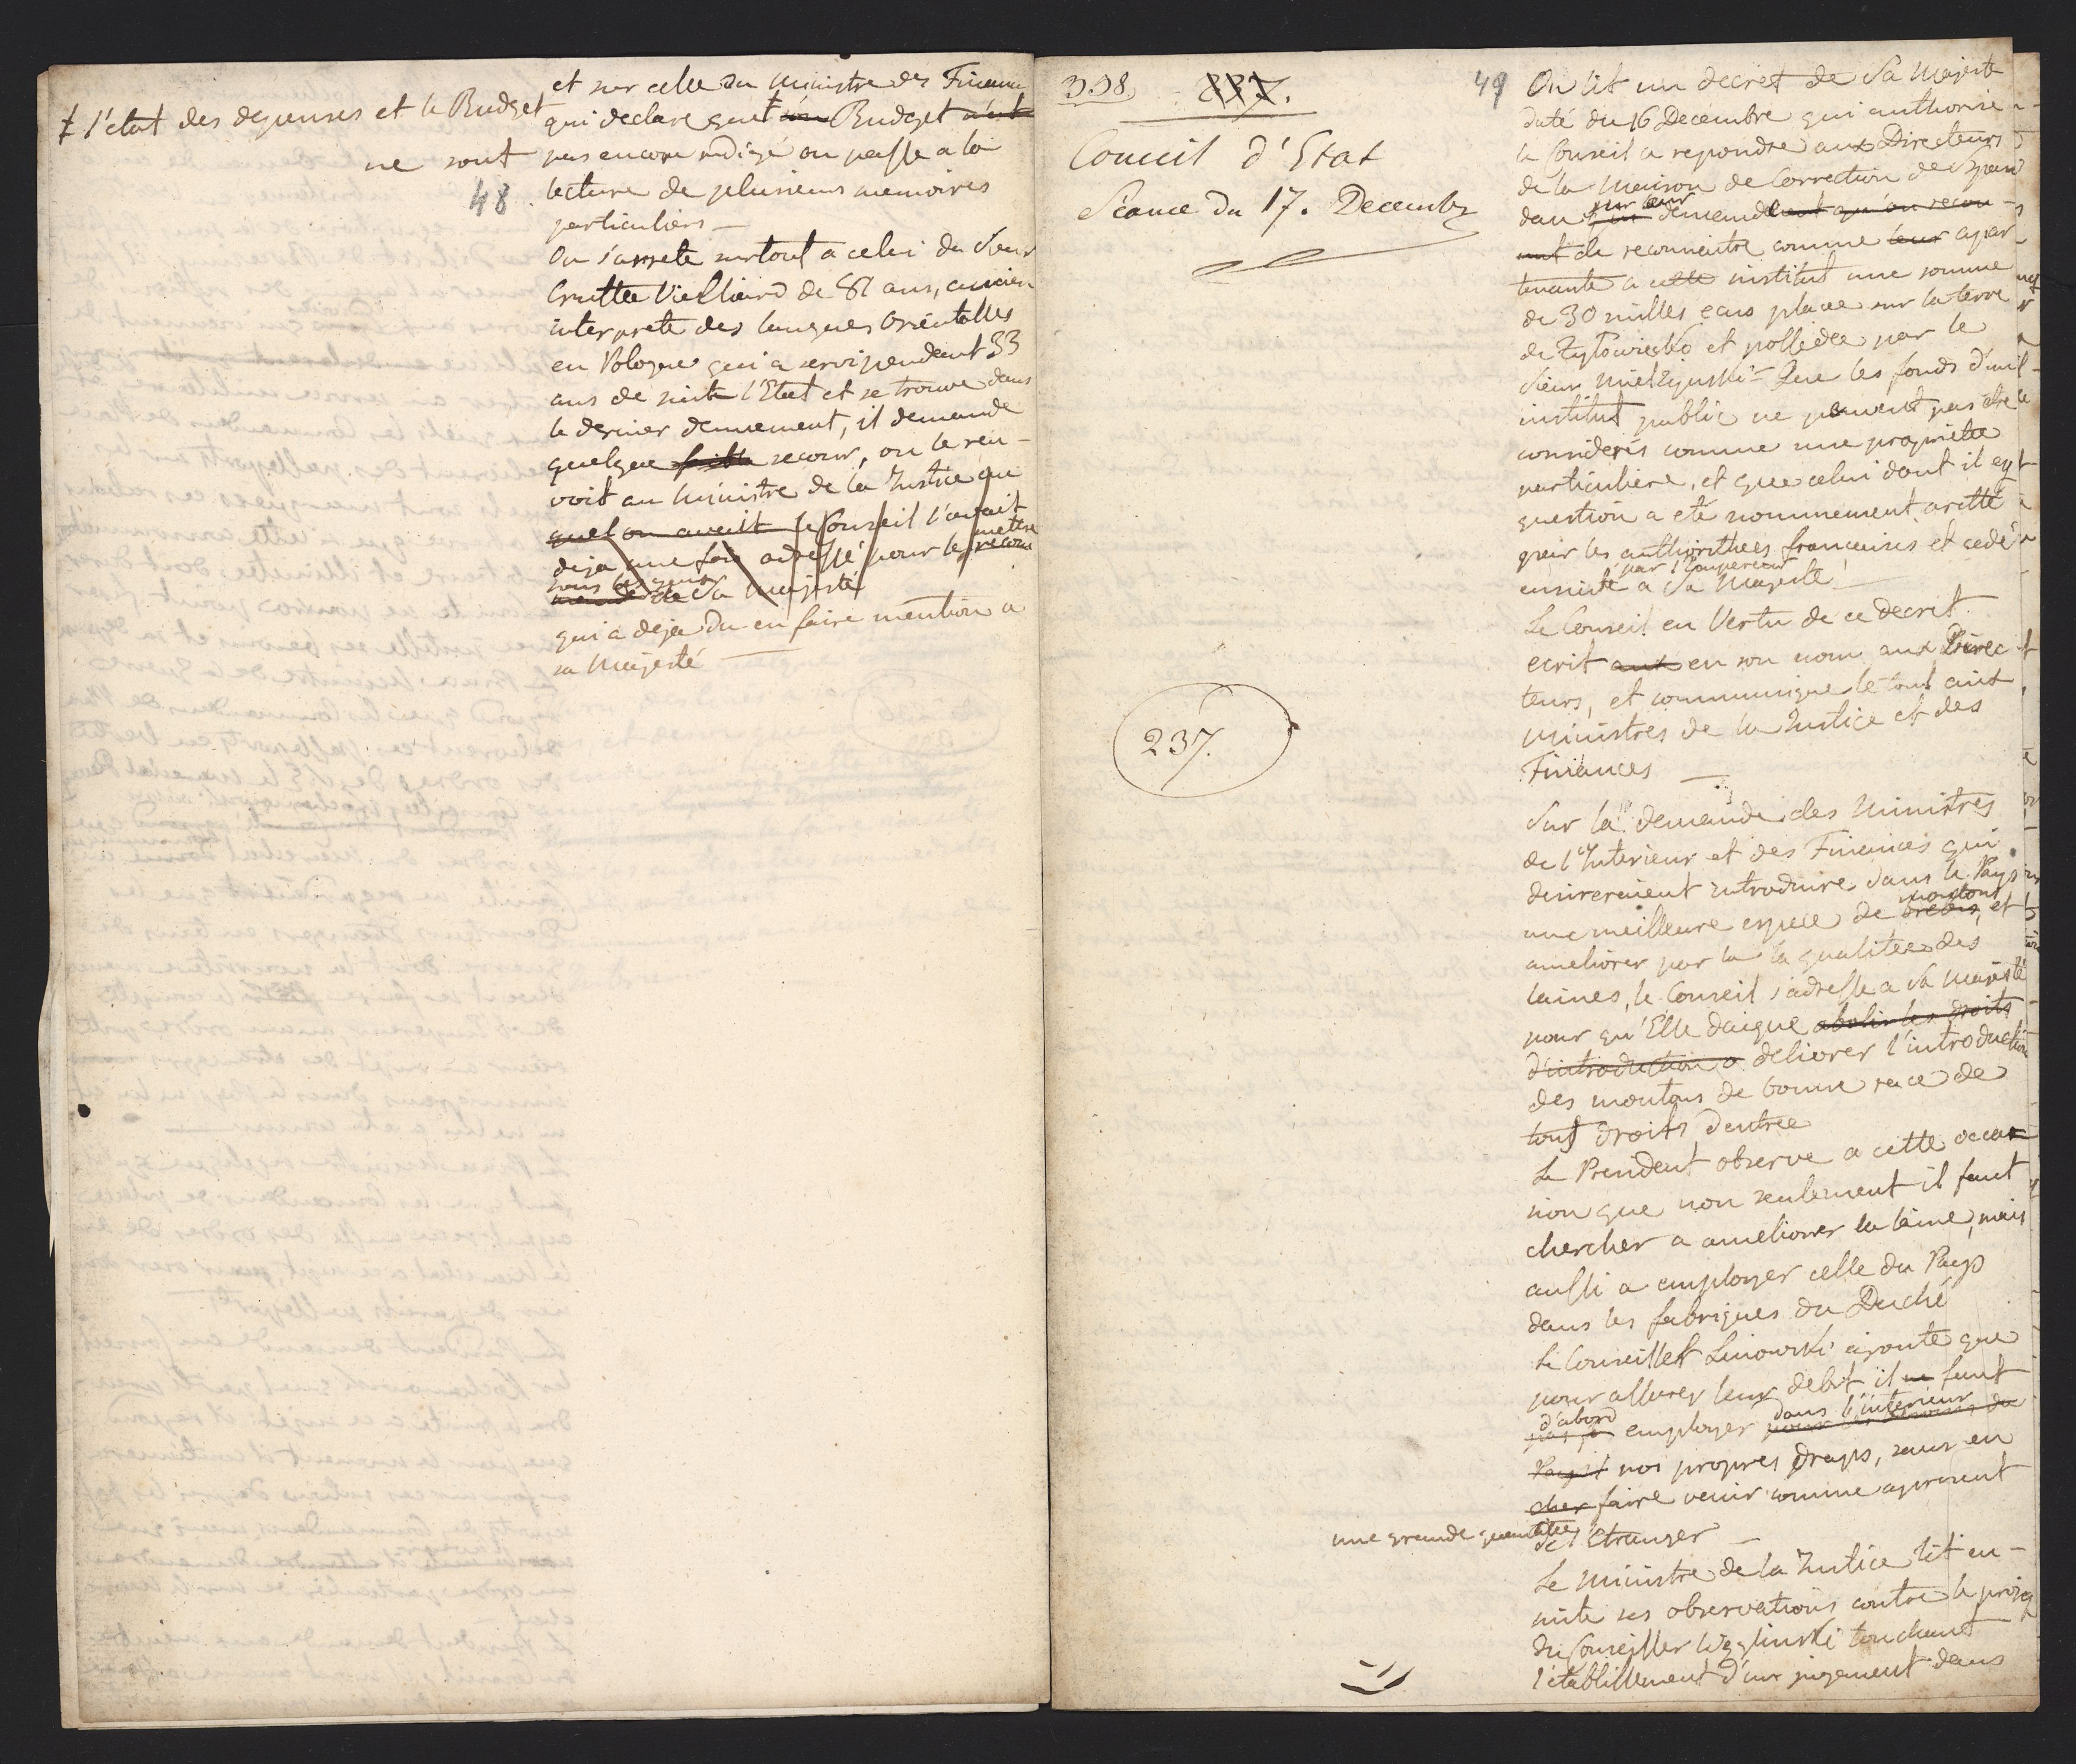 et sur celle du Ministre des Financ
‡ l'etat des depenses et le Budget
qui declare que ‡ son Budget n'est
ne sont
pas encore redigé on passe a la
48
lecture de plusieurs memoires
particuliers —
On s'arrete surtout a celui du Sieur
Crutta Vielliard de 81 ans, ancien
interprete des langues Orientalles
en Pologne qui a servi pendant 33
ans de suite l'Etat et se trouve dans
le dernier denuement, il demande
quelque secour, on le ren-
voit au Ministre de la Justice que
quel on avait le Conseil l'avait
deja une fois adressé pour le mettre
recom
sous les yeux
de Sa Majesté
qui a deja du en faire mention a
sa Majesté —
338 337.
Conseil d'Etat
Séance du 17. Decembr
237.
49
On lit un decret de Sa Majesté
daté du 16 Decembre qui authorise
le Conseil a repondre aux Directeurs
de la Maison de Correction de
dans sur leur demande qu'on recon-
nut de reconnaitre comme leur apar-
tenante a cette institut une somme
de 30 milles ecus placee sur la terre
de et possedee par le
Sieur Mielzynski — Que les fonds d'un
institut public ne peuvent pas etre
considerés comme une proprietée
particuliere, et que celui dont il est
question a eté nommement aretté
par les authorithees françaises et cedé
par l'Empereur
ensuite a Sa Majesté —
Le Conseil en Vertu de ce decret
ecrit aux en son nom aux Direc
teurs, et communique le tout aux
Ministres de la Justice et des
Finances —
Sur la demande des Ministres
de l'Interieur et des Finances qui
desireraient introduire dans le Pays
moutons
une meilleure espece de brebis, et
ameliorer par la la qualitee des
laines, le Conseil s'adresse a Sa Majesté
pour qu'Elle daigne abolir les droits
d'introduction a delivrer l'introduction
des moutons de bonne race de
tout droits d'entree
Le President observe a cette occa
sion que non seulement il faut
chercher a ameliorer la laine, mais
aussi a employer celle du Pays
dans les fabriques du Duché
Le Conseiller Linowski ajoute que
pour assurer leur debit il ne faut
d'abord employer dans l'interieur
pour les du
Pays nos propres draps, sans en
cher faire venir comme apresent
une grande quantitee
de l'Etranger —
Le Ministre de la Justice lit en-
suite ses observations contre le projet
du Conseiller Węglinski touchant
l'etablissement d'un jugement dans